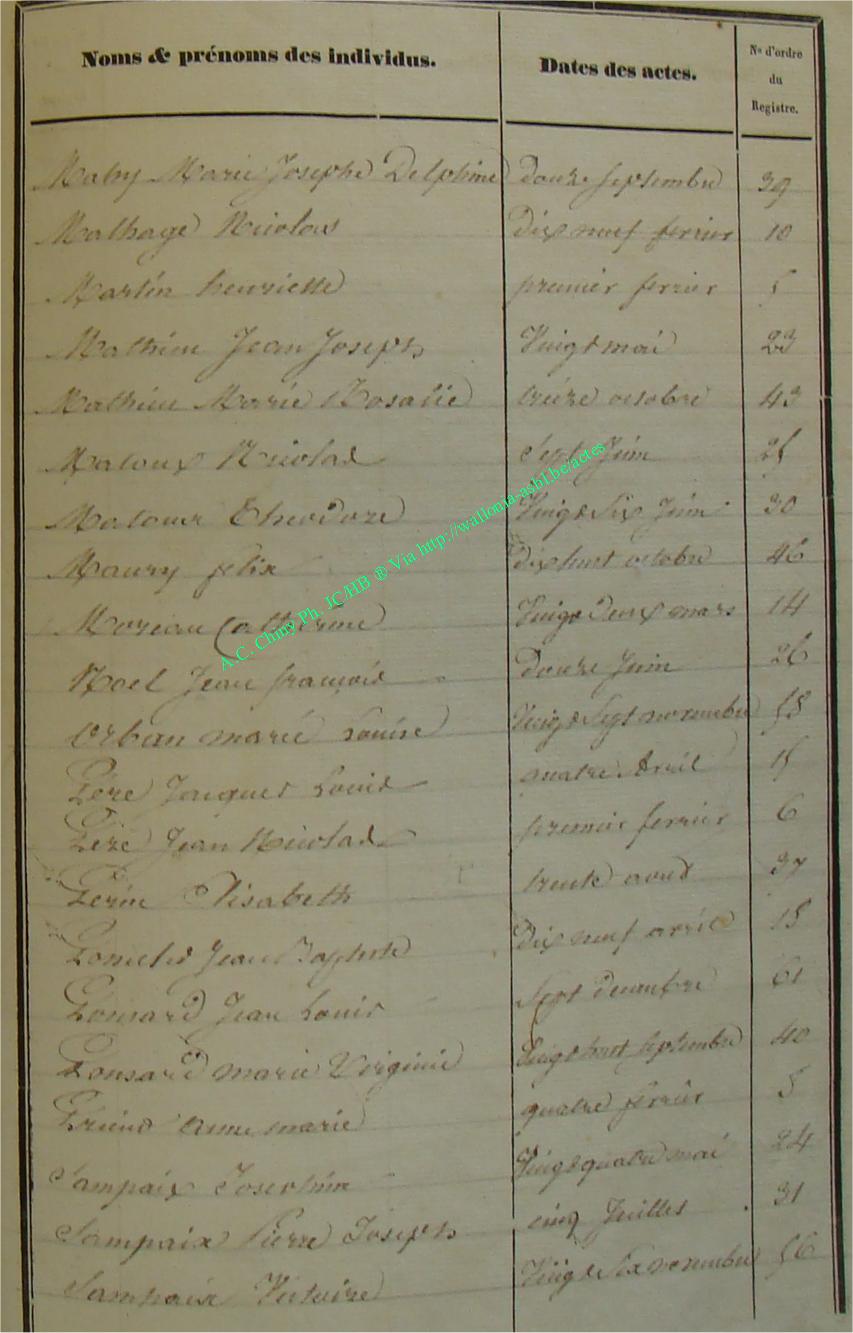 Noms & prénoms des individus. Dates des actes. No d'ordre du Registre.
Mahy Marie Josephe Delphine douze septembre 39
Malhage Nicolas dix neuf fevrier 10
Martin henriette premier fevrier 5
Mathieu Jean Joseph Vingt mai 23
Mathieu Marie Rosalie treize octobre 43
Matoux Nicolas Sept Juin 25
Matoux Theodore Vingt Six Juin 30
Maury felix dix huit octobre 46
Moreau Catherine Vingt Deux mars 14
Noel Jean francois douze Juin 26
Urban marie Louise Vingt Sept novembre 58
Péré Jacques Louis quatre Avril 15
Péré Jean Nicolas premier fevrier 6
Perin Elisabeth trente aout 37
Jean Baptiste Dix neuf avril 18
Ponsard Jean Louis Sept decembre 61
Ponsard marie Virginie Vingt huit Septembre 40
anne marie quatre fevrier 8
Sampaix Josephine Vingt quatre mai 24
Sampaix Pierre Joseph cinq Juillet 31
Sampaix Victoire Vingt Six novembre 56
A.C. Chiny Ph. JC/HB ® Via http://wallonia-asbl.be/actes